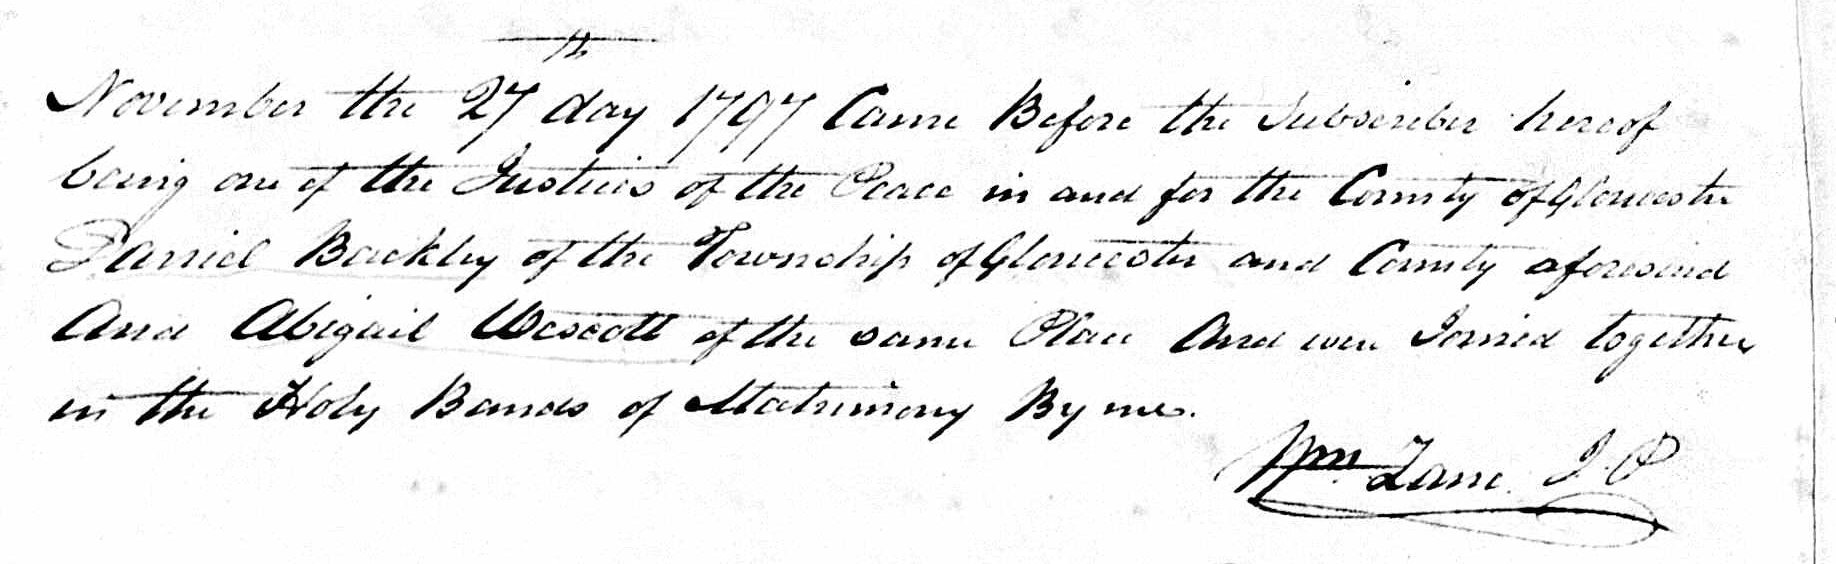 November the 27th day 1797 Came Before the Subscriber hereof
being one of the Justices of the Peace in and for the County of Gloucester
Daniel Backley of the Township of Gloucester and County aforesaid
And Abigail Wescott of the same Place And were Joined together
in the Holy Bands of Matrimony By me.
Wm. Zane. J. P